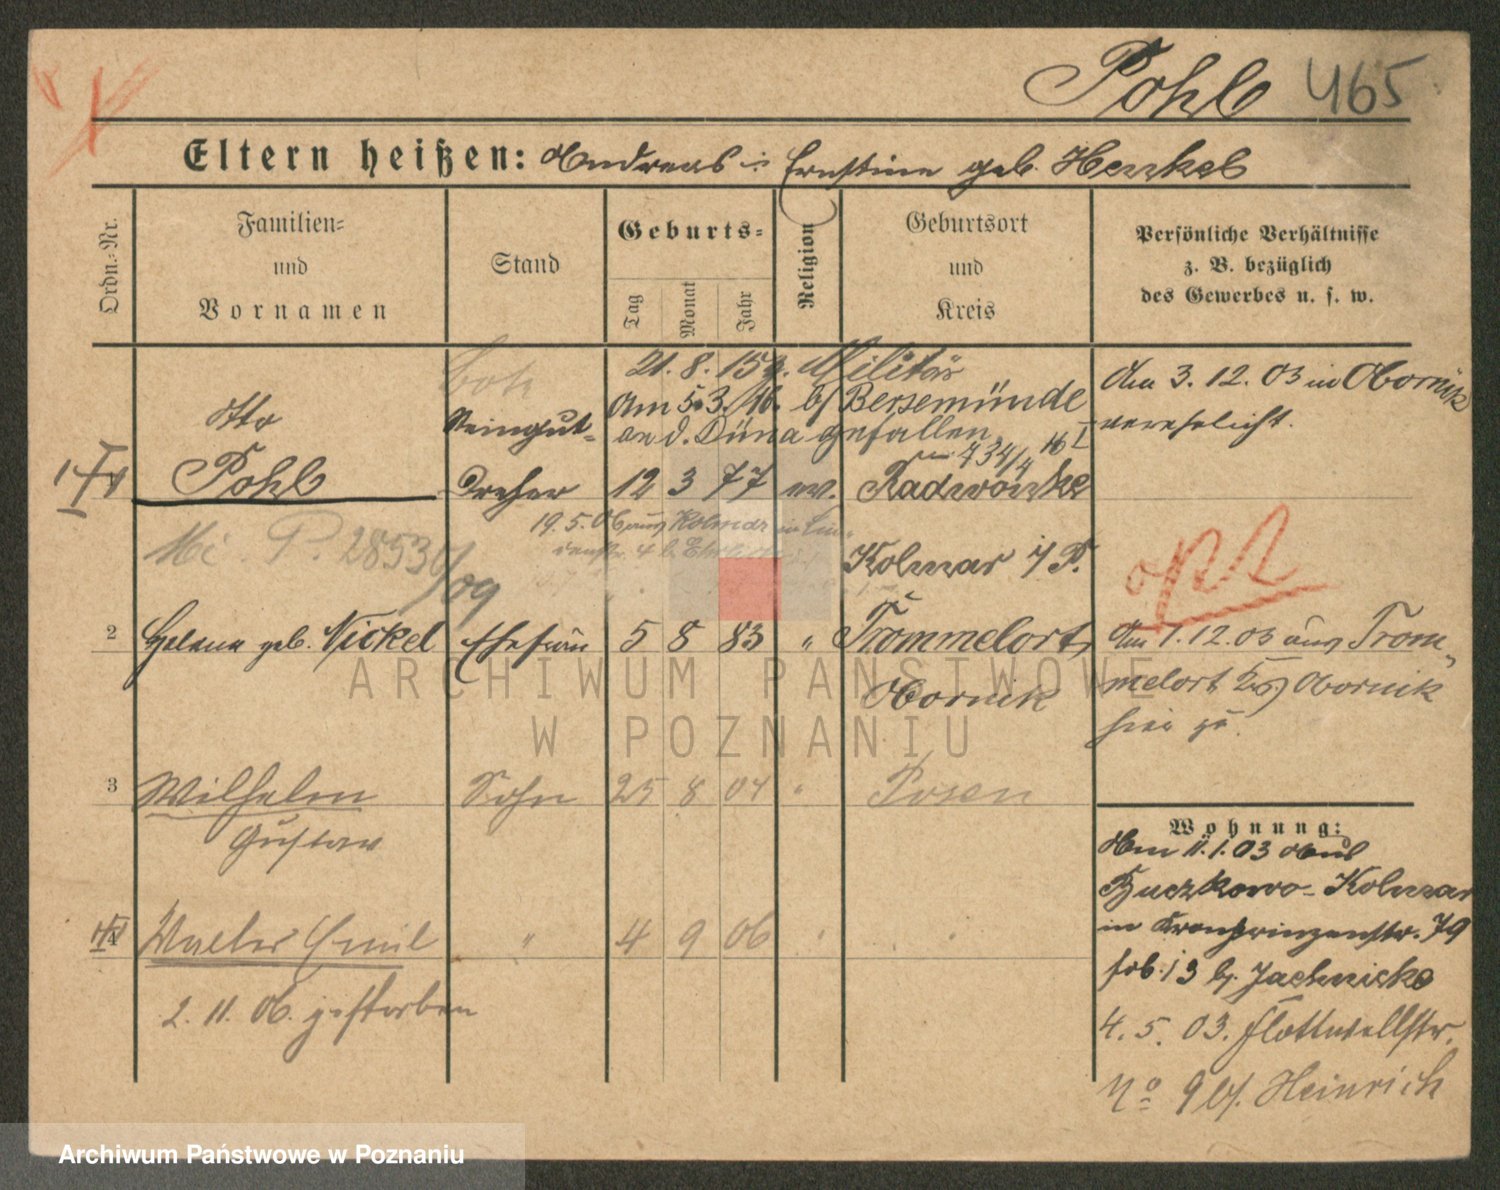 Pohl 465
Eltern heißen: Andreas u Ernstine geb. Henkel
Ordn.-Nr.
Familien-
und
Vornamen
Stand
Geburts-
Tag
Monat
Jahr
Religion
Geburtsort
und
Kreis
Persönliche Verhältnisse
z. B. bezüglich
des Gewerbes u. s. w.
21. 8. 15 z. Militär
Am 5. 3. 16. b/ Bersemünde
an d. Düna gefallen
734/4 16 I
Otto
Pohl
Steingut-
Dreher
12 3 77 ev. Radwonke
Kolmar i/P.
Am 3. 12. 03 in Obornik
verehelicht.
19. 5. 06 aus Kolmar in
P. 28530/09
2 Helene geb. Nickel Ehefrau 5 8 83 " Trommelort,
Obornik
Am 7. 12. 03 aus Trom-
melort Obornik
hier zu.
3 Wilhelm Sohn 25 8 04 " Posen
Gustav
4 Walter Emil " 4 9 06
2. 11. 06. gestorben
Wohnung:
Am 11. 1. 03 aus
Buczkowo-Kolmar
in Kronprinzenstr. 79
b/. Jachnicke
4. 5. 03. Flottwellstr.
No 9 b/. Heinrich
ARCHIWUM PAŃSTWOWE
W POZNANIU
Archiwum Państwowe w Poznaniu